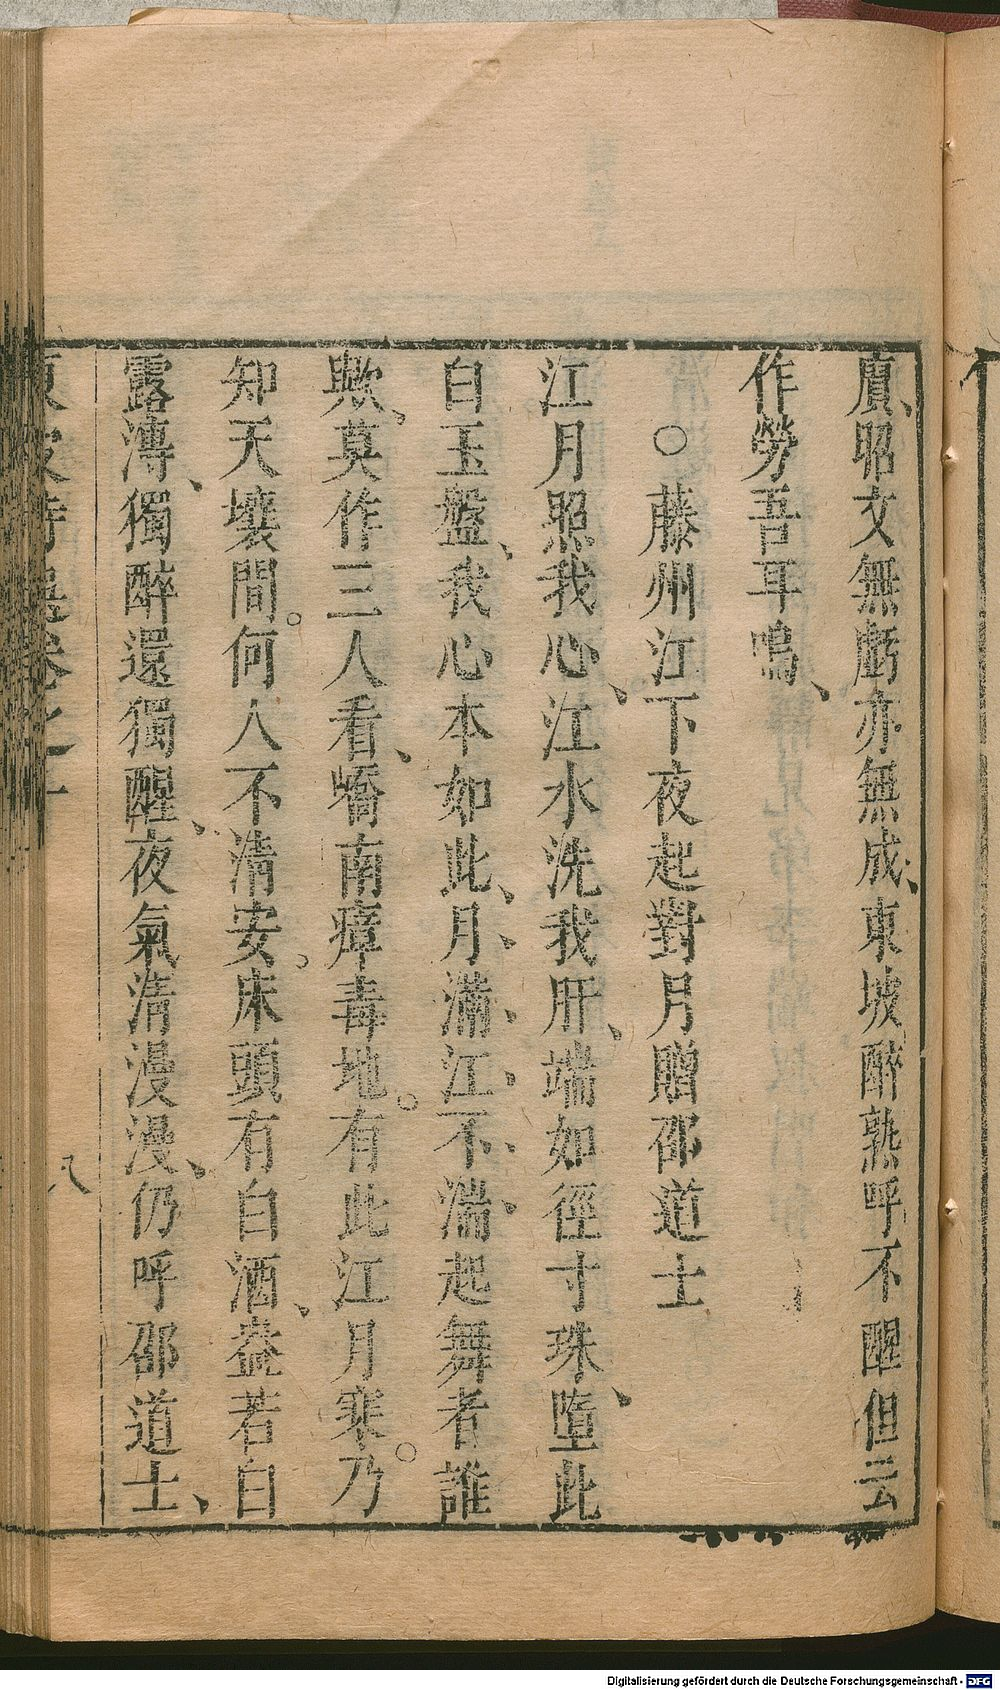 賡、昭文無虧亦無成、東坡醉熟呼不醒但云
作勞吾耳鳴、
○藤州江下夜起對月贈邵道士
江月照我心、江水洗我肝、端如徑寸珠、墮此
白玉盤、我心本如此、月滿江不湍起舞者誰
歟、莫作三人看、嶠南瘴毒地。有此江月寒。乃
知天壤間。何人不清安。床頭有白酒、盎若白
露漙、獨醉還獨醒、夜氣清漫漫、仍呼邵道士、
卷之十
八
Digitalisierung gefördert durch die Deutsche Forschungsgemeinschaft - DFG